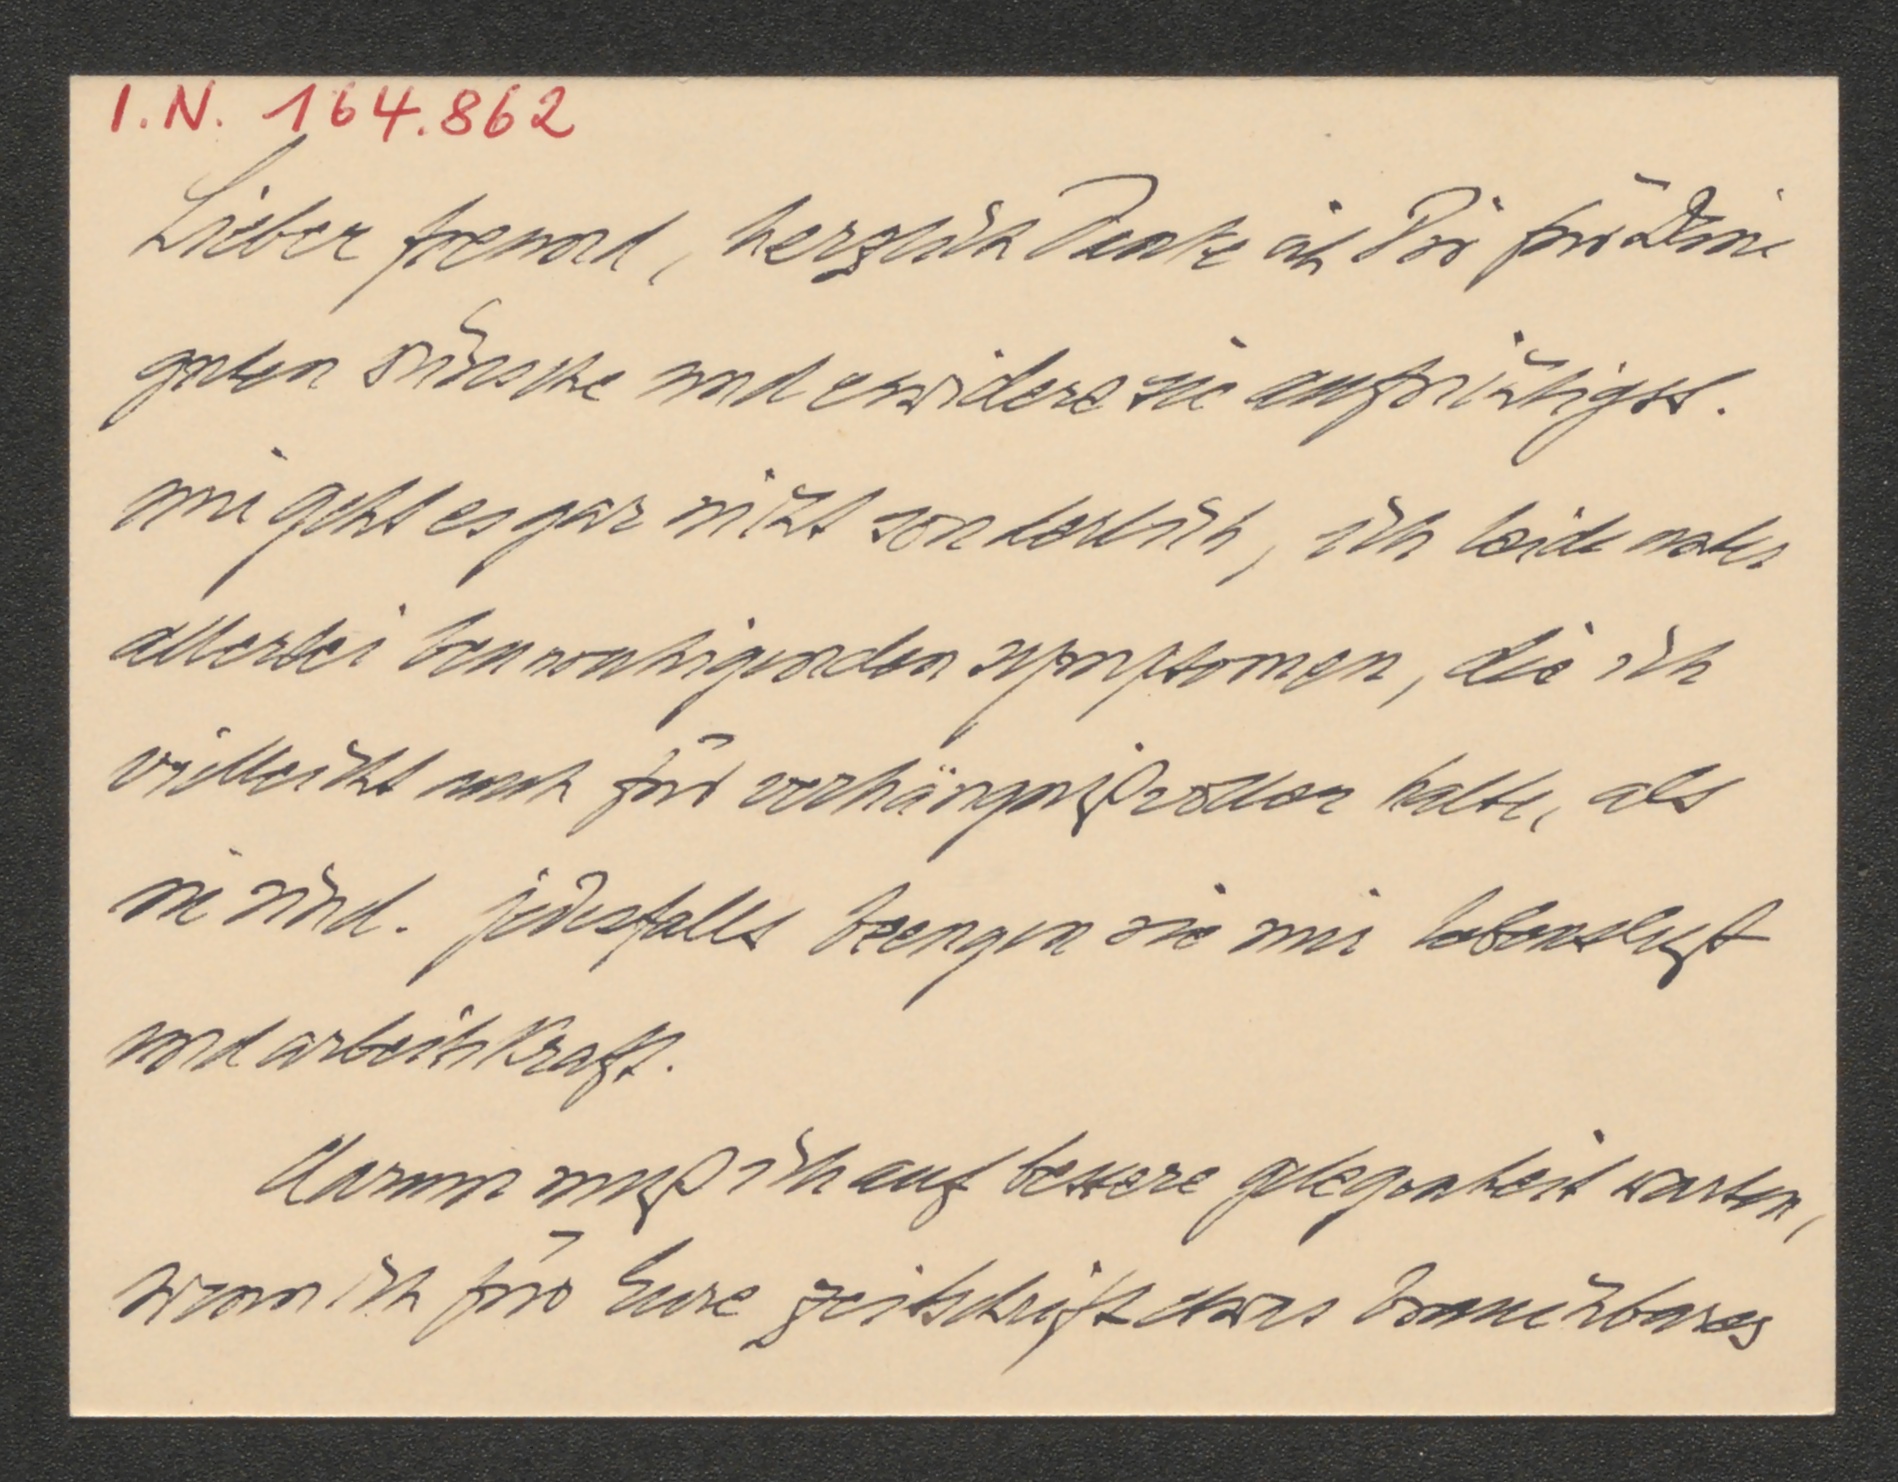 I.N. 164.862
Lieber freund, herzlich Danke ich Dir für Deine
guten wünsche und erwidere sie aufrichtigst.
mir geht es gar nicht sonderlich, ich leide unter
allerlei beunruhigenden symptomen, die ich
vielleicht auch für verhängnißvoller halte, als
sie sind. jedesfalls beengen sie mir lebenslust
und arbeitskraft.
darum muß ich auf bessere gelegenheit warten,
wenn ich für Eure zeitschrift etwas brauchbares